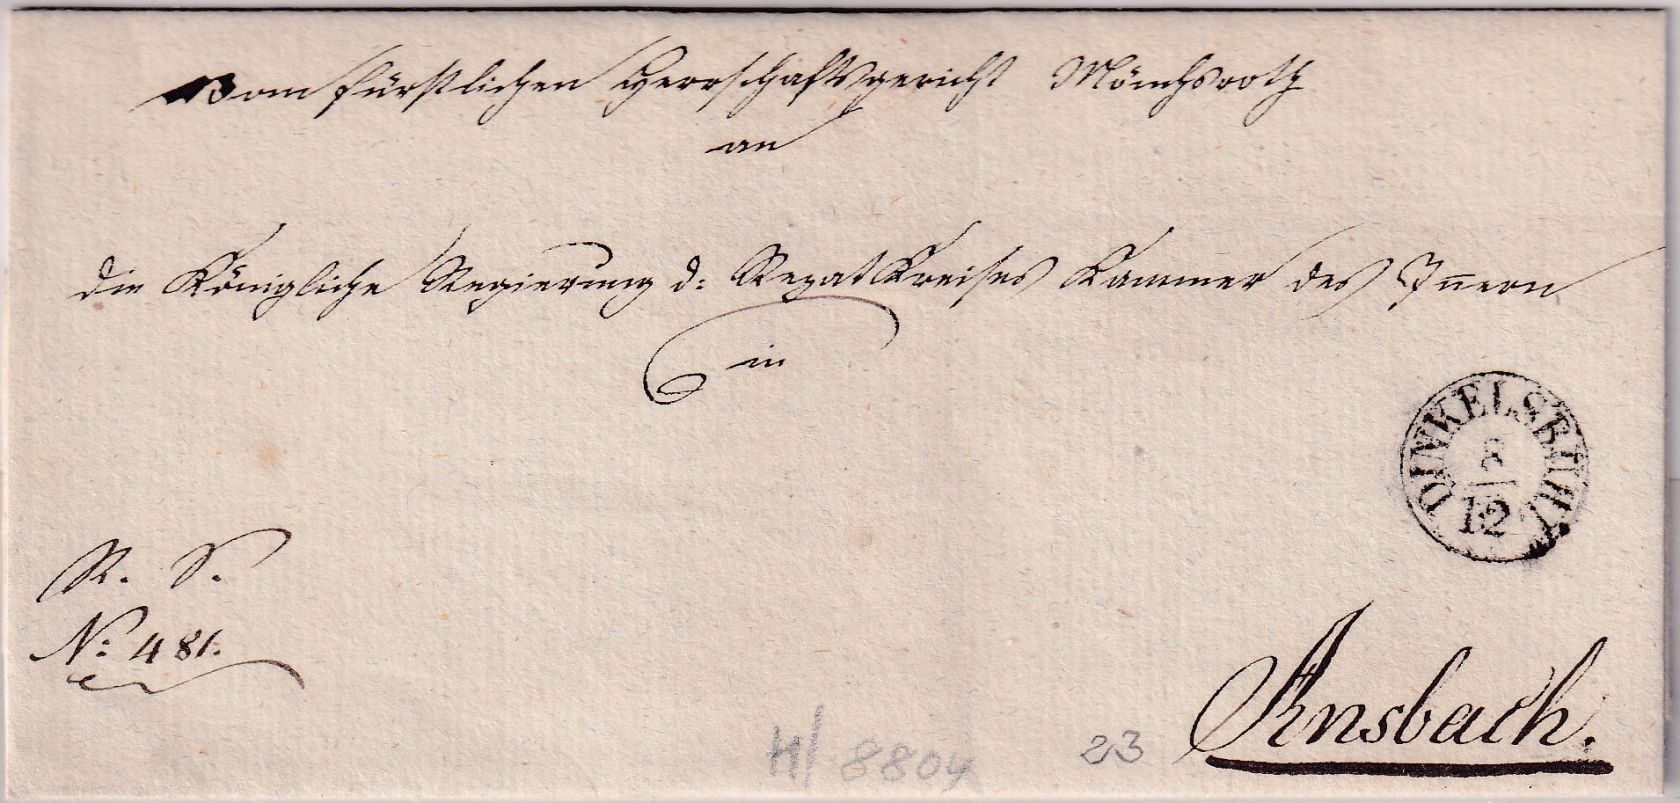 Vom fürstlichen Herrschaftsgericht Mönchsroth
an
die Königliche Regierung d: Rezatkreises Kammer des Innern
in
DINKELSBÜHL
8
12
R. S.
N: 481.
Ansbach.
H/ 8804
23